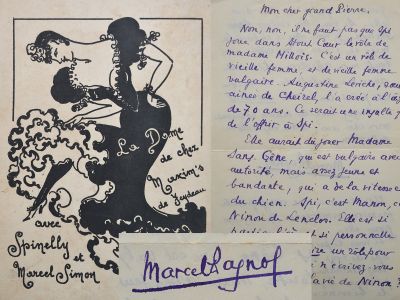 La Dame
de chez
Maxim's
de Feydeau
avec
Spinelly
et
Marcel Simon
Marcel Pagnol
Mon cher grand Pierre.
Non, non, il ne faut pas que Spi
joue dans Mon Cœur le rôle de
madame Millois. C'est un rôle de
vieille femme, et de vieille femme
vulgaire. Augustine Leriche,
ainée de Cheirel, l'a créé à l'âge
de 70 ans. Ce serait une insulte
de l'offrir à Spi.
Elle aurait dû jouer Madame
Sans Gêne, qui est vulgaire avec
autorité, mais assez jeune et
bandante, qui a de la vitesse
du chien. Spi, c'est Manon, c'
Ninon de Lenclos. Elle est si
et si personnelle
un rôle pour
n'écrivez-vous
la vie de Ninon ?